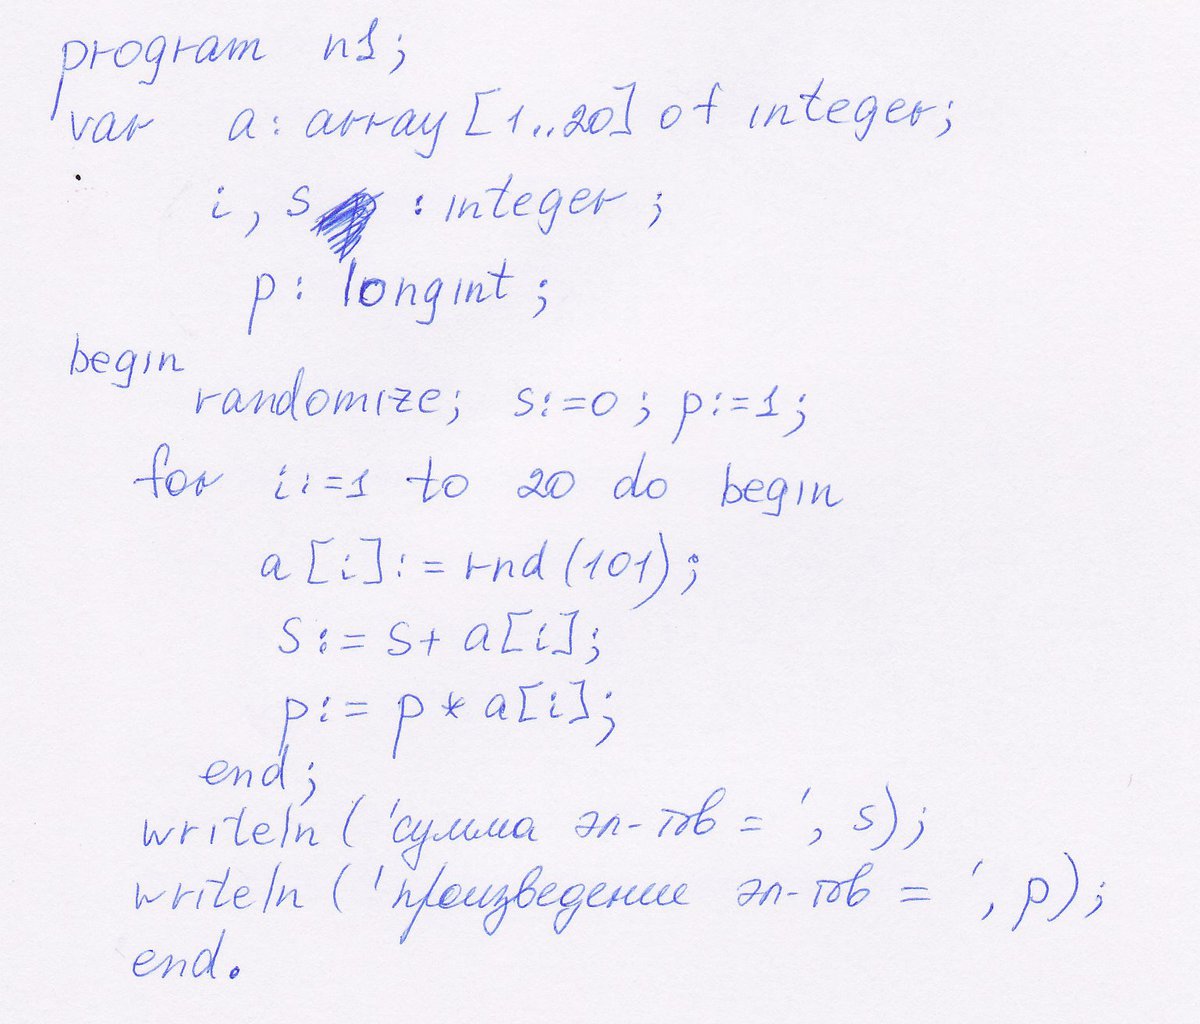 program n1;
var a: array [1..20] of integer;
i, s : integer;
p: longint;
begin
randomize; s:=0; p:=1;
for i:=1 to 20 do begin
a[i]:= rnd(101);
s:= s+ a[i];
p:= p * a[i];
end;
writeln ('сумма эл-тов = ', s);
writeln ('произведение эл-тов = ', p);
end.